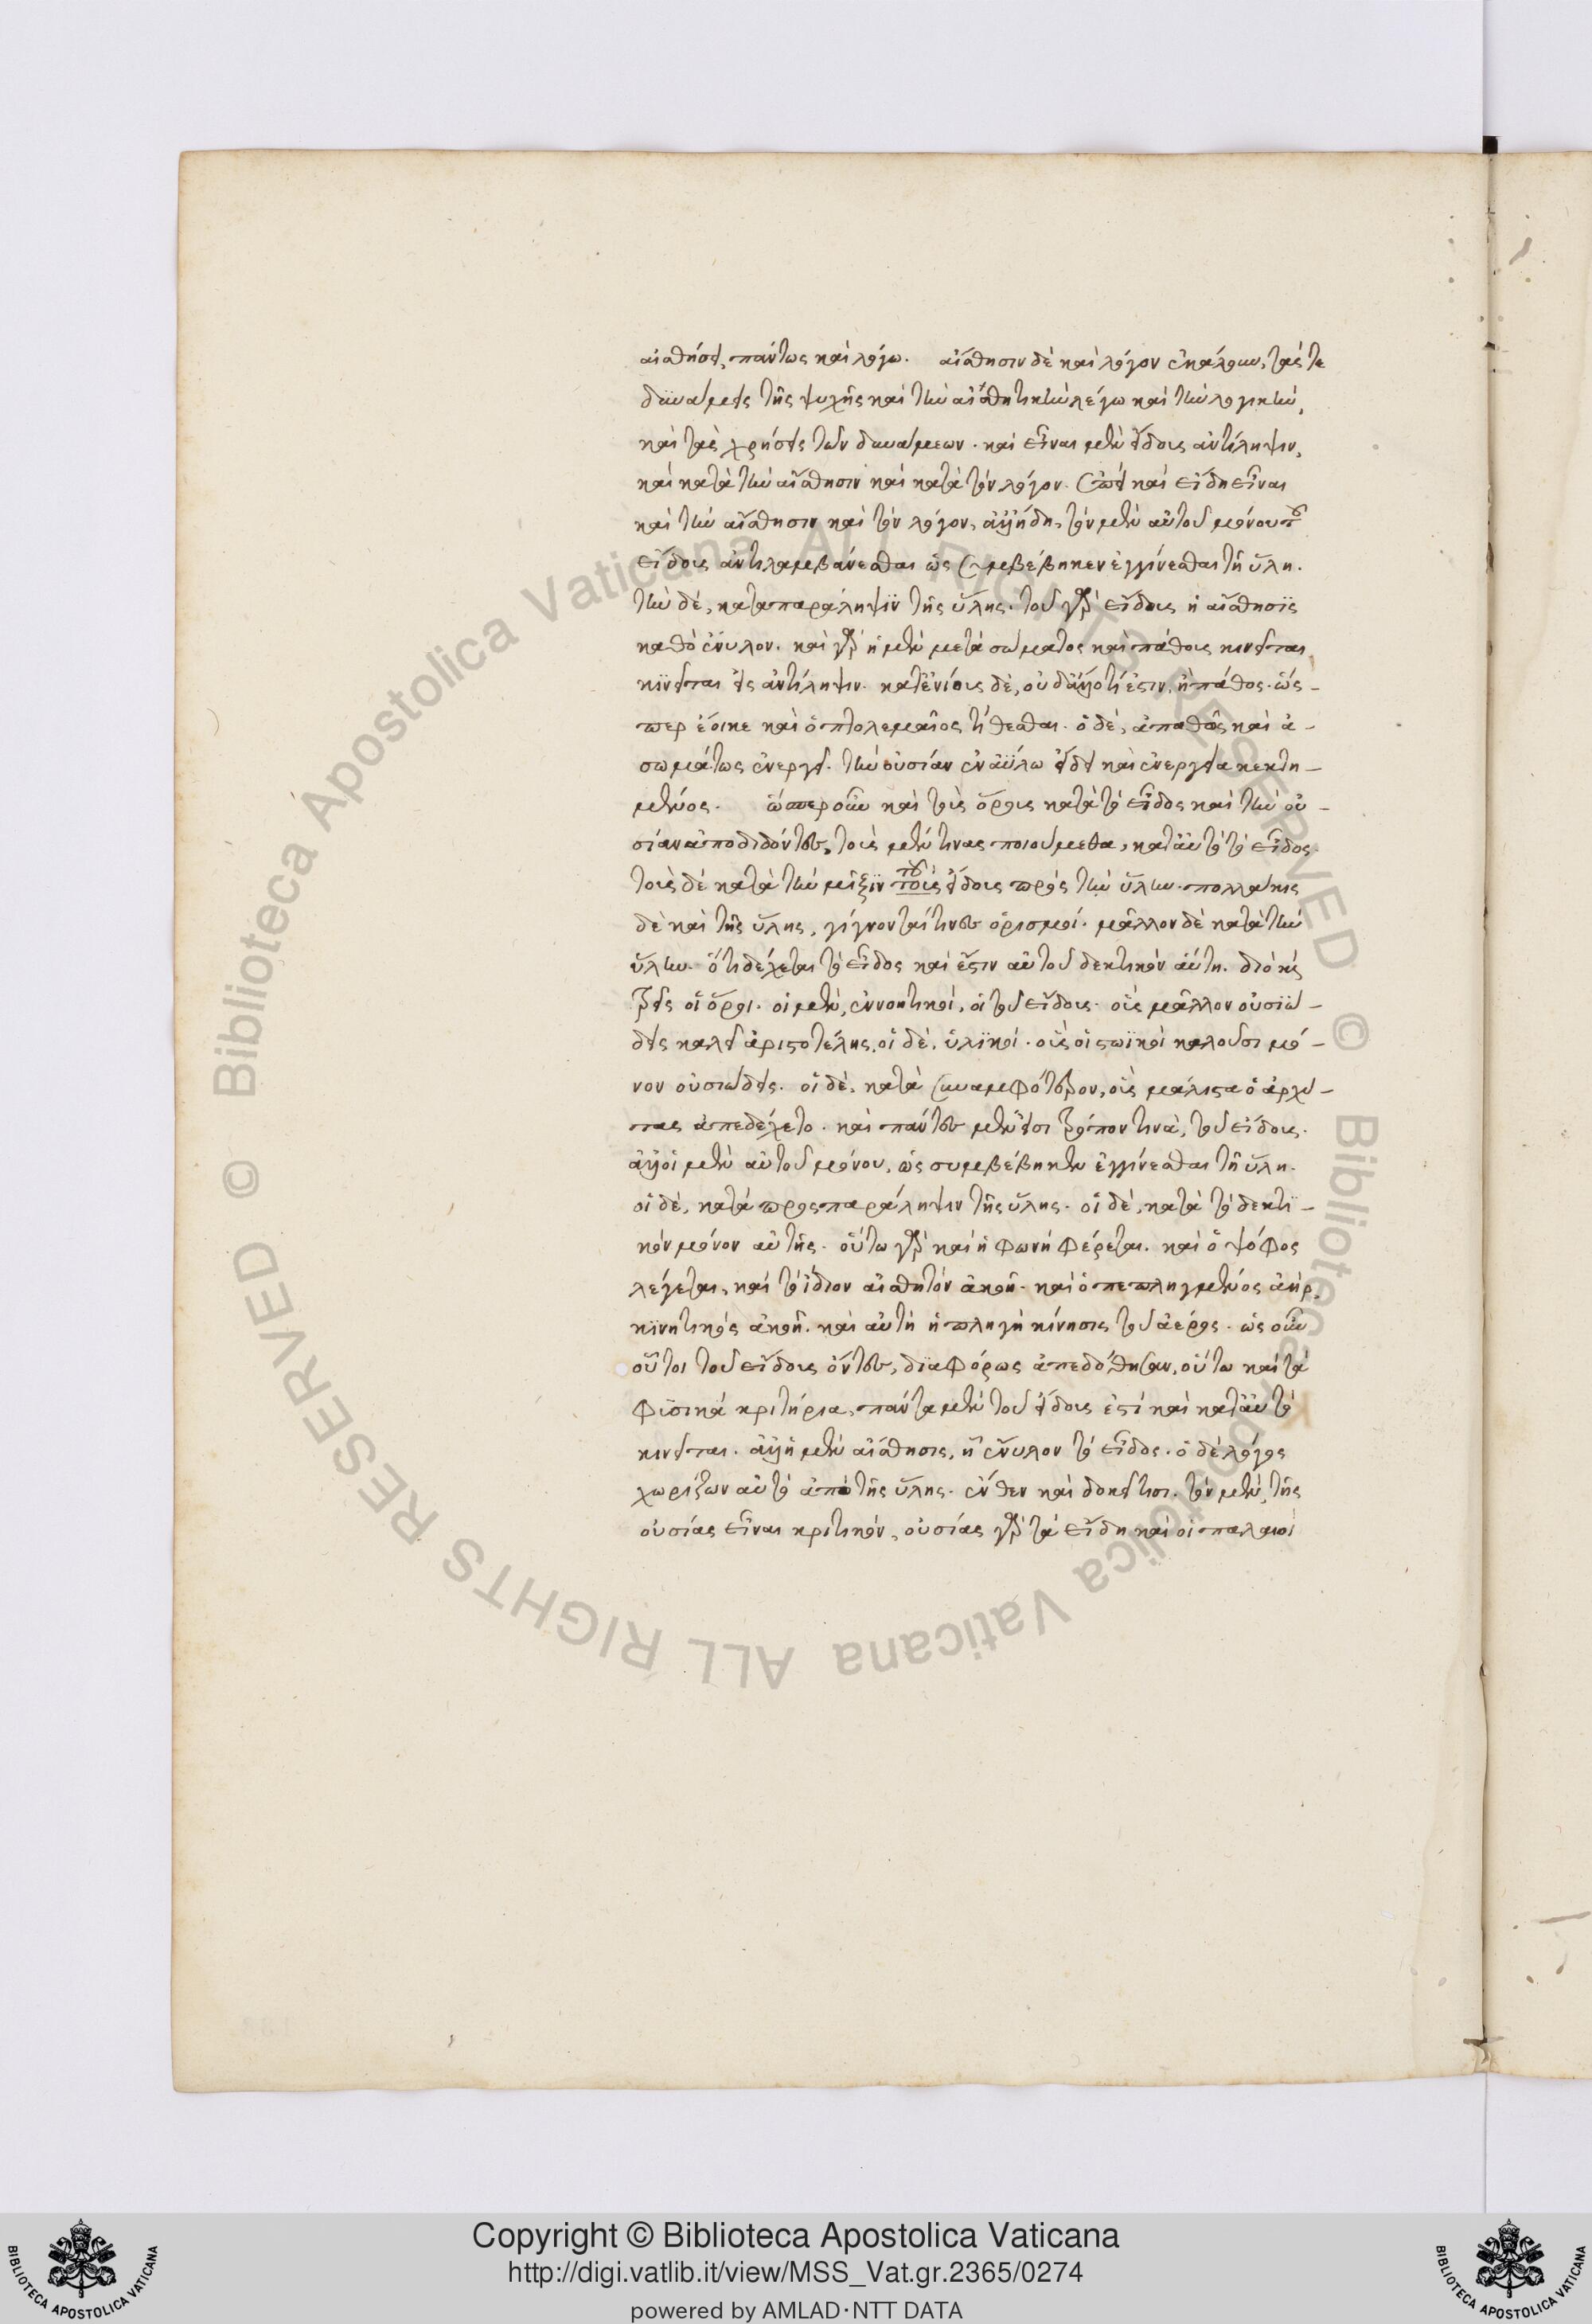 αἰσθήσει, πάντως καὶ λόγω. αἴσθησιν δὲ καὶ λόγον ἐκάλουν, τάς τε
δυνάμεις τῆς ψυχῆς καὶ τὴν αἰσθητικὴν λέγω καὶ τὴν λογικὴν,
καὶ τὰς χρήσεις τῶν δυνάμεων. καὶ εἶναι μὲν εἴδους ἀντίληψιν,
καὶ κατὰ τὴν αἴσθησιν καὶ κατὰ τὸν λόγον. ὥστε καὶ εἴδη εἶναι
καὶ τὴν αἴσθησιν καὶ τὸν λόγον, ἀλλ' ἤδη, τὸν μὲν αὐτοῦ μόνου τοῦ
εἴδους ἀντιλαμβάνεσθαι ὡς συμβέβηκεν ἐγγίνεσθαι τῆ ὕλη.
τὴν δὲ, κατα παράληψϊν τῆς ὕλης. τοῦ γὰρ εἴδους ἡ αἴσθησϊς
καθὸ ἔνυλον. καὶ γὰρ ἡ μὲν μετὰ σώματος καὶ πάθους κινεῖται,
κϊνεῖται εἰς ἀντίληψιν. κατ' ἐνίους δὲ, οὐδ' ἄλλο τί ἐστιν, ἢ πάθος. ὥς-
περ ἔοικε καὶ ὁ πτολεμαῖος τίθεσθαι. ὁ δὲ, ἀπαθῶς καὶ ἀ-
σωμάτως ἐνεργεῖ. τὴν οὐσίαν ἐν ἀΰλω εἴδει καὶ ἐνεργεία κεκτη-
μένος. ὥσπερ οὖν καὶ τοὺς ὅρους κατὰ τὸ εἶδος καὶ τὴν οὐ-
σίαν ἀποδιδόντες, τοὺς μέν τινας ποιούμεθα, κατ' αὐτὸ τὸ εἶδος.
τοὺς δὲ κατὰ τὴν μῖξϊν τοῦ τοὺς εἴδους πρὸς τὴν ὕλην. πολλάκις
δὲ καὶ τῆς ὕλης, γίγνονταί τινες ὁρισμοί. μᾶλλον δὲ κατὰ τὴν
ὕλην. ὅτι δέχεται τὸ εἶδος καὶ ἔστιν αὐτοῦ δεκτικὸν αὕτη. διὸ καὶ
τρεῖς οἱ ὅροι. οἱ μὲν, ἐννοητικοί, οἱ τοῦ εἴδους. οὓς μᾶλλον οὐσϊώ-
δεις καλεῖ ἀριστοτέλης. οἱ δὲ, ὑλϊκοί. οὓς οἱ στωϊκοὶ καλοῦσι μό-
νον οὐσιώδεις. οἱ δὲ, κατὰ συναμφότερον, οὓς μάλιστα ὁ ἀρχύ-
τας ἀπεδέχετο. καὶ πάντες μέν εἰσι τρόπον τινὰ, τοῦ εἴδους.
ἀλλ' οἱ μὲν αὐτοῦ μόνου, ὡς συμβέβηκεν ἐγγίνεσθαι τῆ ὕλη.
οἱ δὲ, κατὰ προςπαράληψιν τῆς ὕλης. οἱ δὲ, κατὰ τὸ δεκτϊ-
κὸν μόνον αὐτῆς. οὕτω γὰρ καὶ ἡ φωνὴ φέρεται. καὶ ὁ ψόφος
λέγεται, καὶ τὸ ἴδιον αἰσθητὸν ἀκοῆ. καὶ ὁ πεπληγμένος ἀήρ,
κϊνητικὸς ἀκοῆ. καὶ αὐτὴ ἡ πληγὴ κίνησις τοῦ ἀέρος. ὡς οὖν
οὗτοι τοῦ εἴδους ὄντες, διαφόρως ἀπεδόθησαν, οὕτω καὶ τὰ
φϋσικὰ κριτήρια, πάντα μὲν τοῦ εἴδους ἐστὶ καὶ κατ' αὐτὸ
κινεῖται. ἀλλ' ἡ μὲν αἴσθησις, ἣ ἔνυλον τὸ εἶδος. ὁ δὲ λόγος
χωρίζων αὐτὸ ἀπὸ τῆς ὕλης. ἔνθεν καὶ δοκεῖ τισι. τὸν μὲν, τῆς
οὐσίας εἶναι κριτικόν, οὐσίας γὰρ τὰ εἴδη καὶ οἱ παλαιοὶ
Copyright © Biblioteca Apostolica Vaticana
http://digi.vatlib.it/view/MSS_Vat.gr.2365/0274
powered by AMLAD·NTT DATA
BIBLIOTECA APOSTOLICA VATICANA
BIBLIOTECA APOSTOLICA VATICANA
© Biblioteca Apostolica Vaticana ALL RIGHTS RESERVED
© Biblioteca Apostolica Vaticana ALL RIGHTS RESERVED